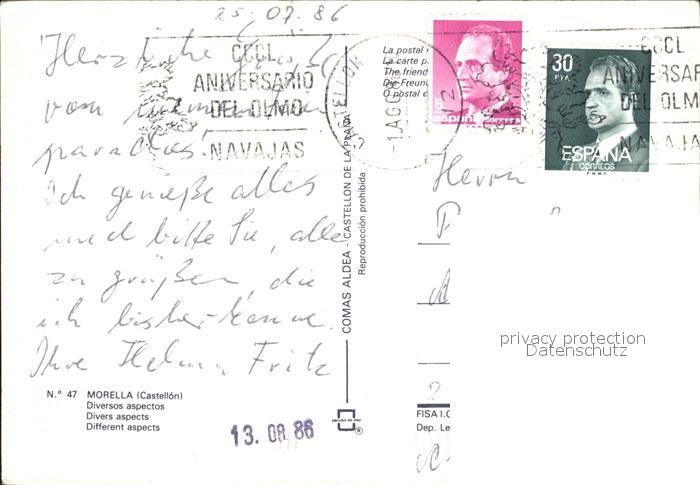 25.07.86
Herzliche Grüße
vom
paradies!
Ich genieße alles
und bitte Sie, alle
zu grüßen, die
ich bisher kenne.
Ihre Helma Fritz
N.º 47 MORELLA (Castellón)
Diversos aspectos
Divers aspects
Different aspects
13. 08. 86
CCCL
ANIVERSARIO
DEL OLMO
NAVAJAS
1 AGO
12
COMAS ALDEA - CASTELLON DE LA PLANA
Reproducción prohibida
ESCUDO DE ORO
®
La postal
La carte p
The friend
Die Freun
O postal c
5
españa correos
30
PTA
ESPAÑA
CORREOS
CCCL
ANIVERSAR
DEL OLMO
NAVAJAS
Herrn
2
privacy protection
Datenschutz
FISA I.G
Dep. Le